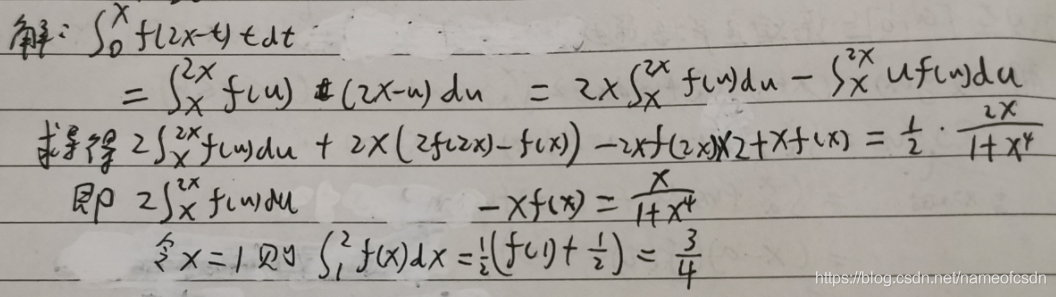 解: ∫₀ˣ f(2x-t) t dt
= ∫ₓ²ˣ f(u) (2x-u) du = 2x∫ₓ²ˣ f(u)du - ∫ₓ²ˣ uf(u)du
求导得 2∫ₓ²ˣ f(u)du + 2x(2f(2x)-f(x)) -2xf(2x)×2+xf(x) = 1/2 · 2x/(1+x⁴)
即 2∫ₓ²ˣ f(u)du -xf(x) = x/(1+x⁴)
令x=1则 ∫₁² f(x)dx = 1/2(f(1)+1/2) = 3/4
https://blog.csdn.net/nameofcsdn